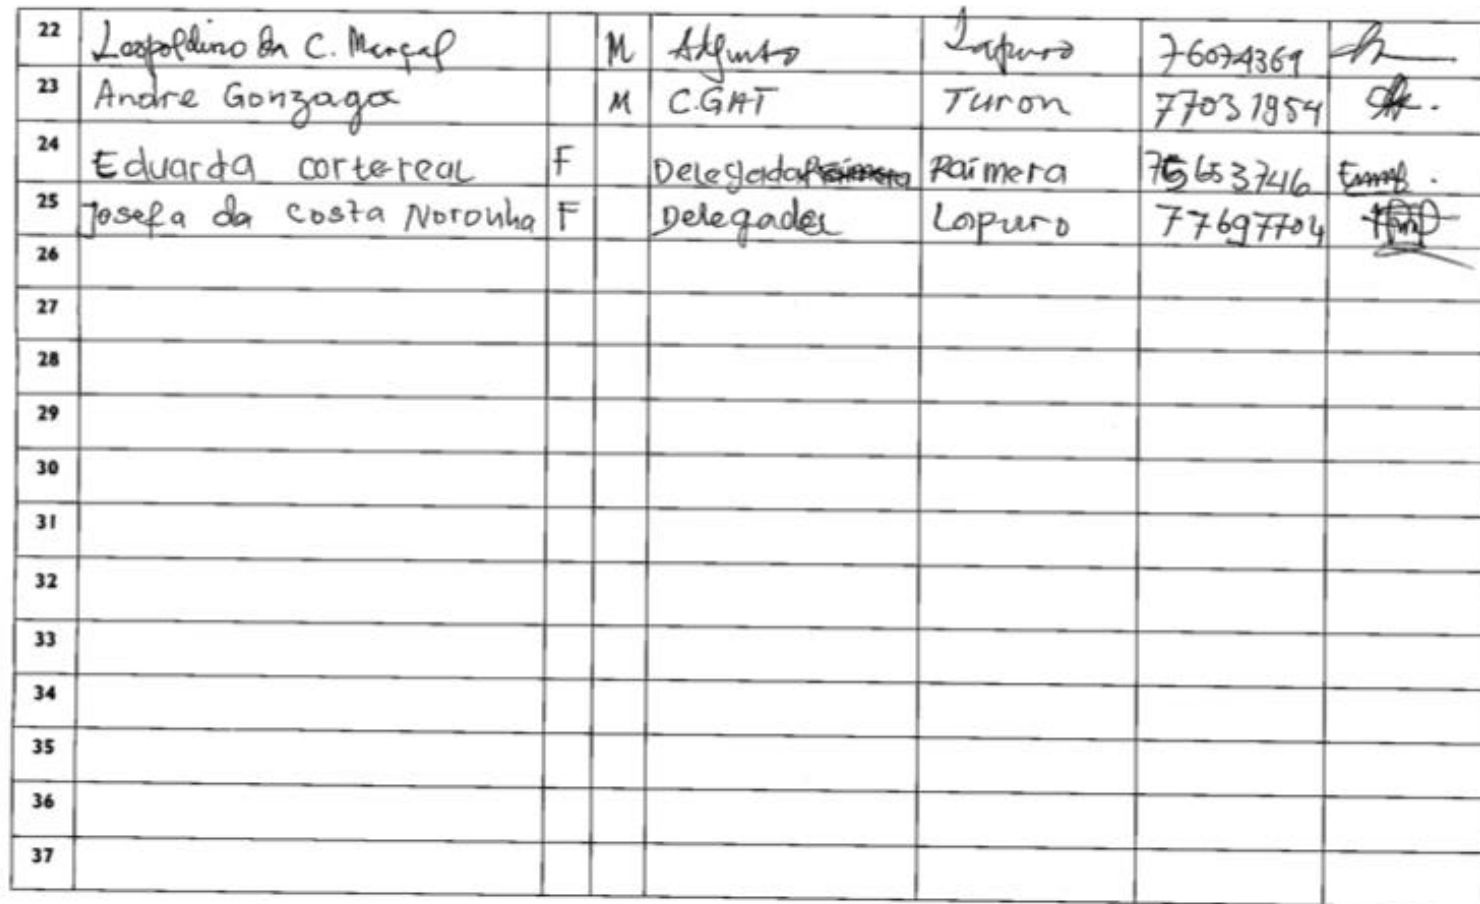 22 Leopoldino da C. Marçal M Adjunto Lapuro 76074369
23 Andre Gonzaga M C.GAT Turon 77031954
24 Eduarda cortereal F Delegada Raimera 75653746
25 Josefa da costa Noronha F Delegada Lapuro 77697704
26
27
28
29
30
31
32
33
34
35
36
37